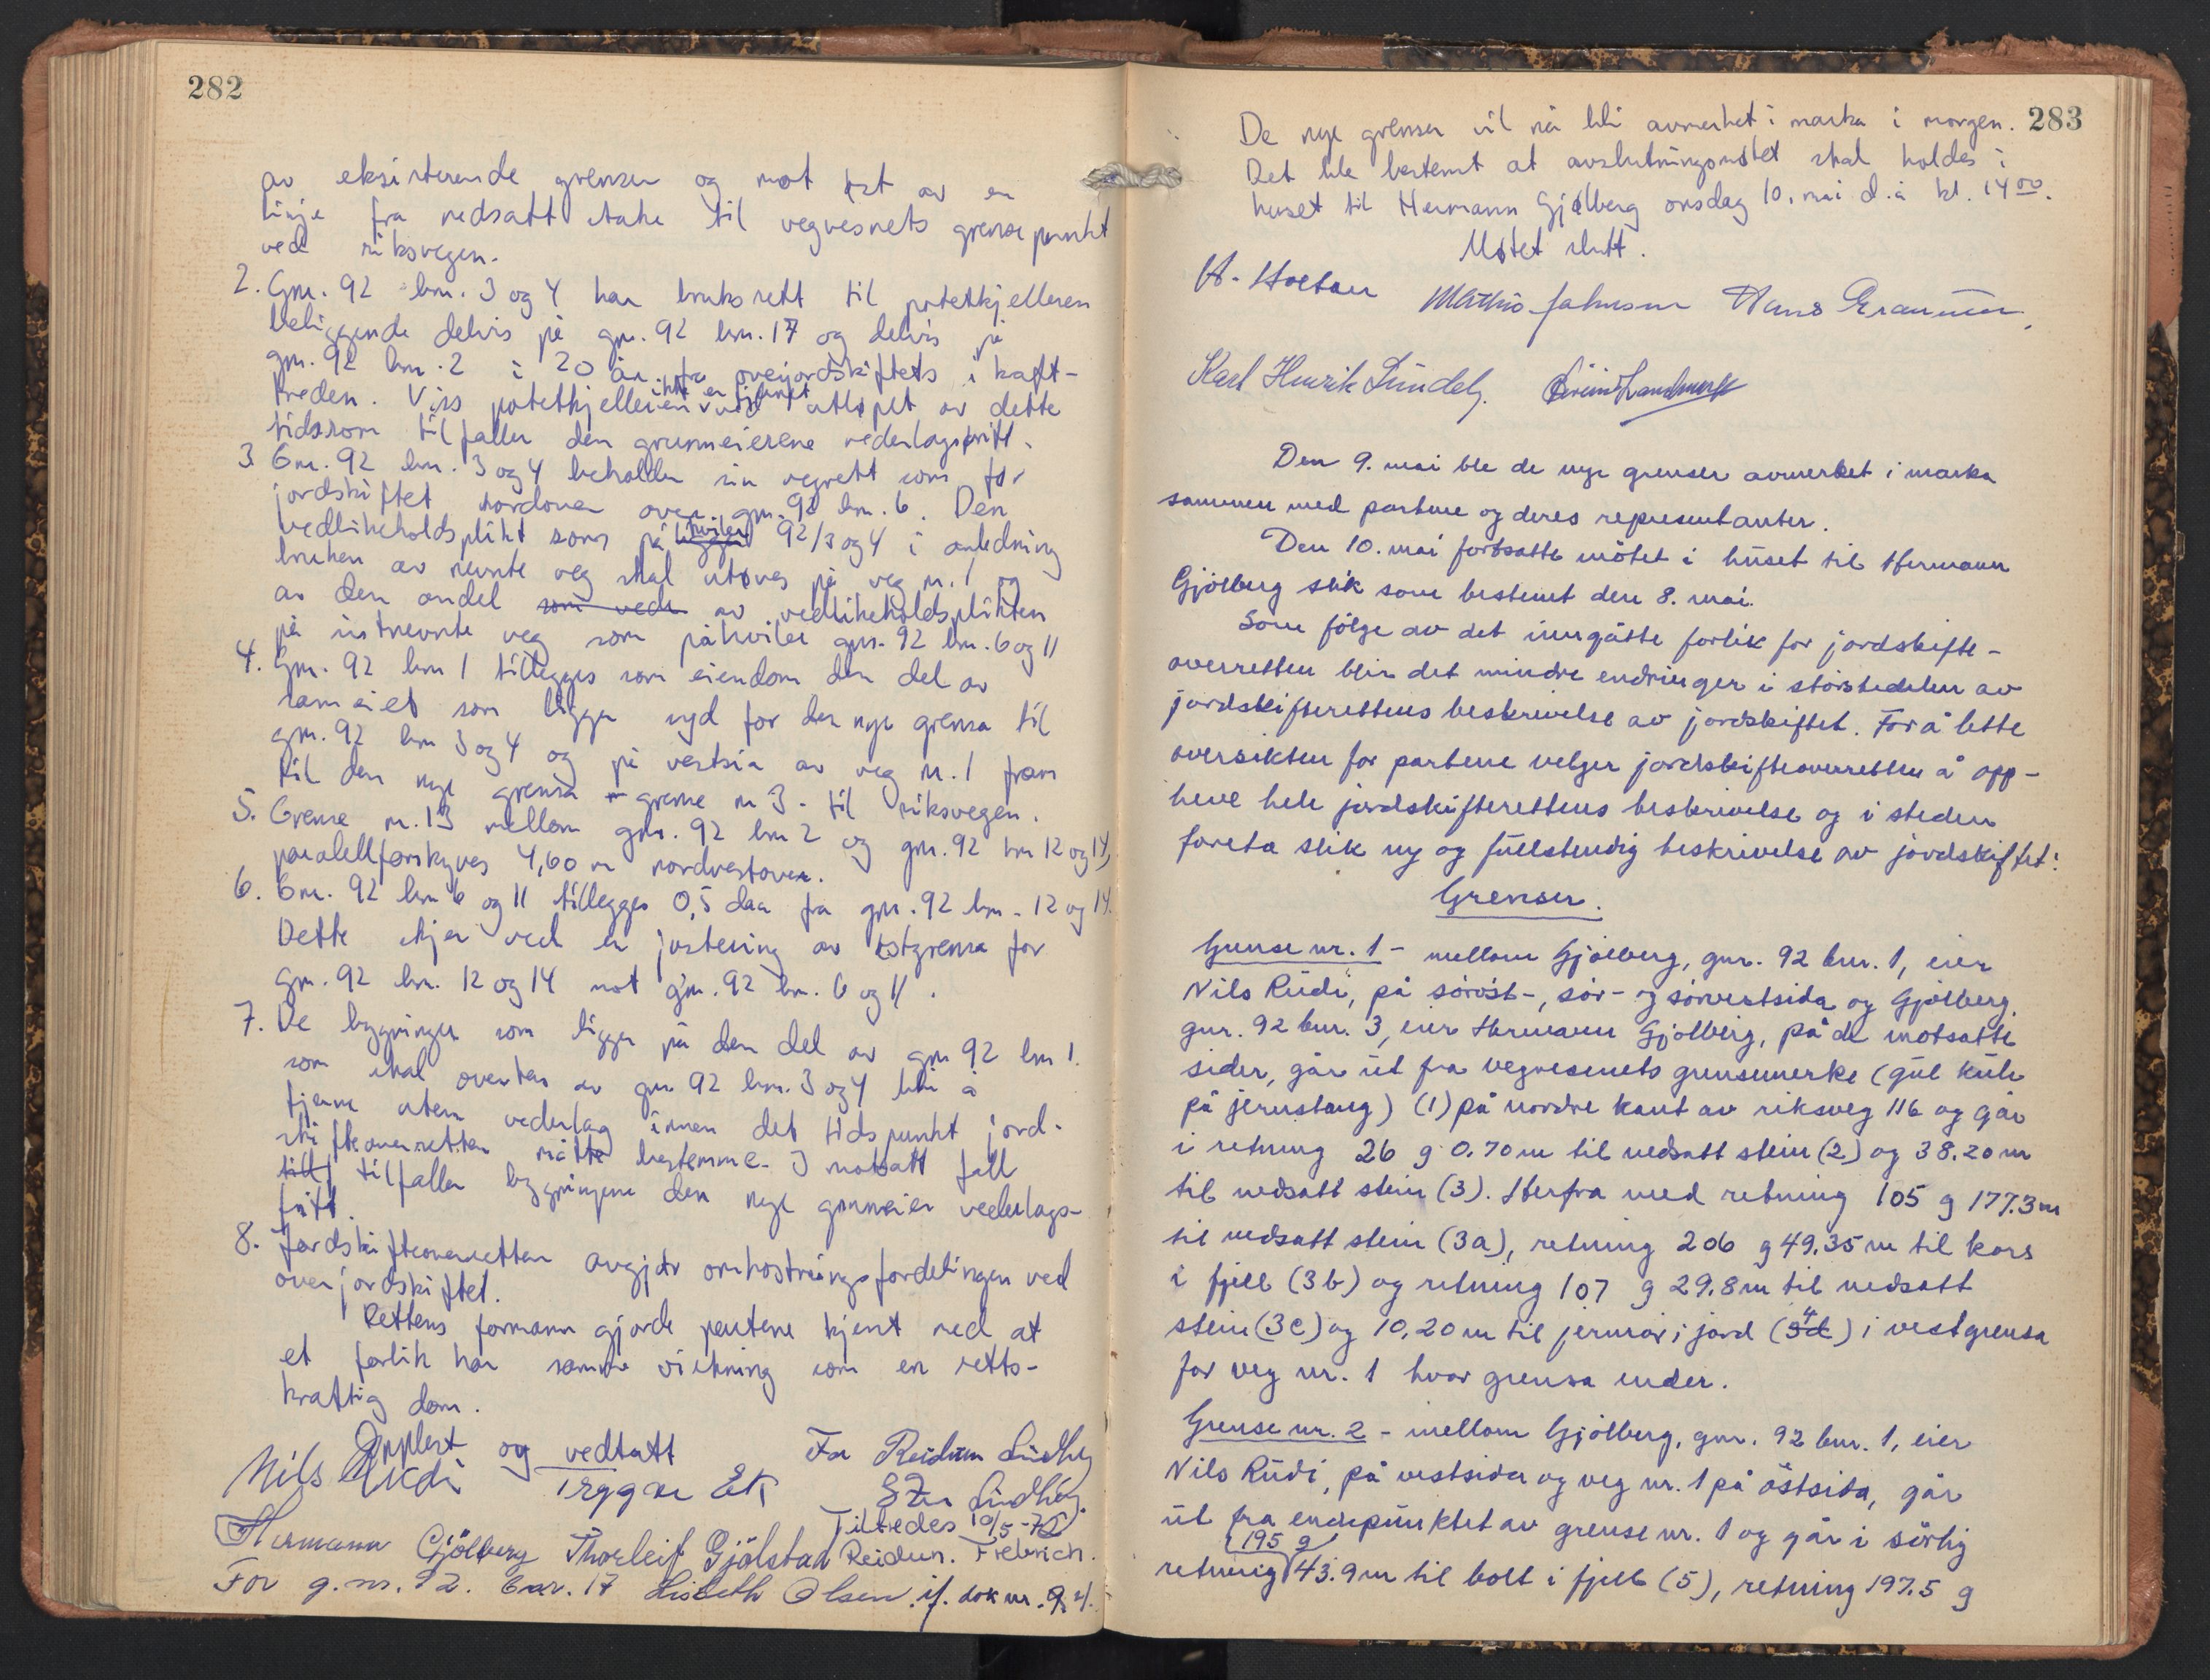 282
av eksisterende grenser og mot øst av en
linje fra nedsatt stake til vegvesnets grensepunkt
ved riksvegen.
2. Gnr. 92 bnr. 3 og 4 har bruksrett til potetkjelleren
beliggende delvis på gnr. 92 bnr. 17 og delvis på
gnr. 92 bnr. 2 i 20 år fra overjordskiftets i kraft-
treden. Viss potetkjelleren ikke er fjernet ved utløpet av dette
tidsrom tilfaller den grunneierene vederlagsfritt.
3. Gnr. 92 bnr. 3 og 4 beholder sin vegrett som før
jordskiftet nordover over gnr. 92 bnr. 6. Den
vedlikeholdsplikt som på hviler 92/3 og 4 i anledning
bruken av nevnte veg skal utøves på veg nr. 1 og
av den andel som vedr av vedlikeholdsplikten
på sistnevnte veg som påhviler gnr. 92 bnr. 6 og 11
4. Gnr. 92 bnr 1 tillegges som eiendom den del av
sameiet som ligger syd for den nye grensa til
gnr. 92 bnr 3 og 4 og på vestsia av veg nr. 1 fram
til den nye grensa - grense nr 3 - til riksvegen.
5. Grense nr. 13 mellom gnr. 92 bnr 2 og gnr. 92 bnr 12 og 14,
paralellforskyves 4,60 m nordvestover.
6. Gnr. 92 bnr 6 og 11 tillegges 0,5 daa fra gnr. 92 bnr. 12 og 14.
Dette skjer ved en justering av østgrensa for
gnr. 92 bnr. 12 og 14 mot gnr. 92 bnr. 6 og 11.
7. De bygninger som ligger på den del av gnr 92 bnr 1.
som skal overtas av gnr 92 bnr. 3 og 4 blir å
fjerne uten vederlag innen det tidspunkt jord-
skifteoverretten måtte bestemme. I motsatt fall
tilf tilfaller bygningene den nye grunneier vederlags-
fritt.
8. Jordskifteoverretten avgjør omkostningsfordelingen ved
overjordskiftet.
Rettens formann gjorde partene kjent med at
et forlik har samme virkning som en retts-
kraftig dom.
Opplest og vedtatt For Reidun Lindhøy
Nils Rudi Tryggve Ek
Tiltredes 10/5-78
Hermann Gjölberg Thorleif Gjølstad Reidun. Fiebrich.
For g.nr. 92. bnr. 17 Lisbeth Olsen. if. dok nr. 921.
283
De nye grenser vil nå bli avmerket i marka i morgen.
Det ble bestemt at avslutningsmøtet skal holdes i
huset til Hermann Gjølberg onsdag 10. mai d.å kl. 14 00.
Møtet slutt.
A. Holtan Mathis Johnsen Hans
Karl Henrik Lundeby.
Den 9. mai ble de nye grenser avmerket i marka
sammen med partene og deres representanter.
Den 10. mai fortsatte møtet i huset til Hermann
Gjølberg slik som bestemt den 8. mai.
Som følge av det inngåtte forlik for jordskifte-
overretten blir det mindre endringer i størstedelen av
jordskifterettens beskrivelse av jordskiftet. For å lette
oversikten for partene velger jordskifteoverretten å opp-
heve hele jordskifterettens beskrivelse og i steden
foreta slik ny og fullstendig beskrivelse av jordskiftet:
Grenser.
Grense nr. 1 - mellom Gjølberg, gnr. 92 bnr. 1, eier
Nils Rudi, på sørøst-, sør- og sørvestsida og Gjølberg,
gnr. 92 bnr. 3, eier Hermann Gjølberg, på de motsatte
sider, går ut fra vegvesenets grensemerke (gul kule
på jernstang) (1) på nordre kant av riksveg 116 og går
i retning 26 g 0.70 m til nedsatt stein (2) og 38.20 m
til nedsatt stein (3). Herfra med retning 105 g 177.3 m
til nedsatt stein (3a), retning 206 g 49.35 m til kors
i fjell (3b) og retning 107 g 29.8 m til nedsatt
stein (3c) og 10,20 m til jernrør i jord (3d 4) i vestgrensa
for veg nr. 1 hvor grensa ender.
Grense nr. 2 - mellom Gjølberg, gnr. 92 bnr. 1, eier
Nils Rudi, på vestsida og veg nr. 1 på østsida, går
ut fra endepunktet av grense nr. 1 og går i sørlig
retning 195 g 43.9 m til bolt i fjell (5), retning 197.5 g